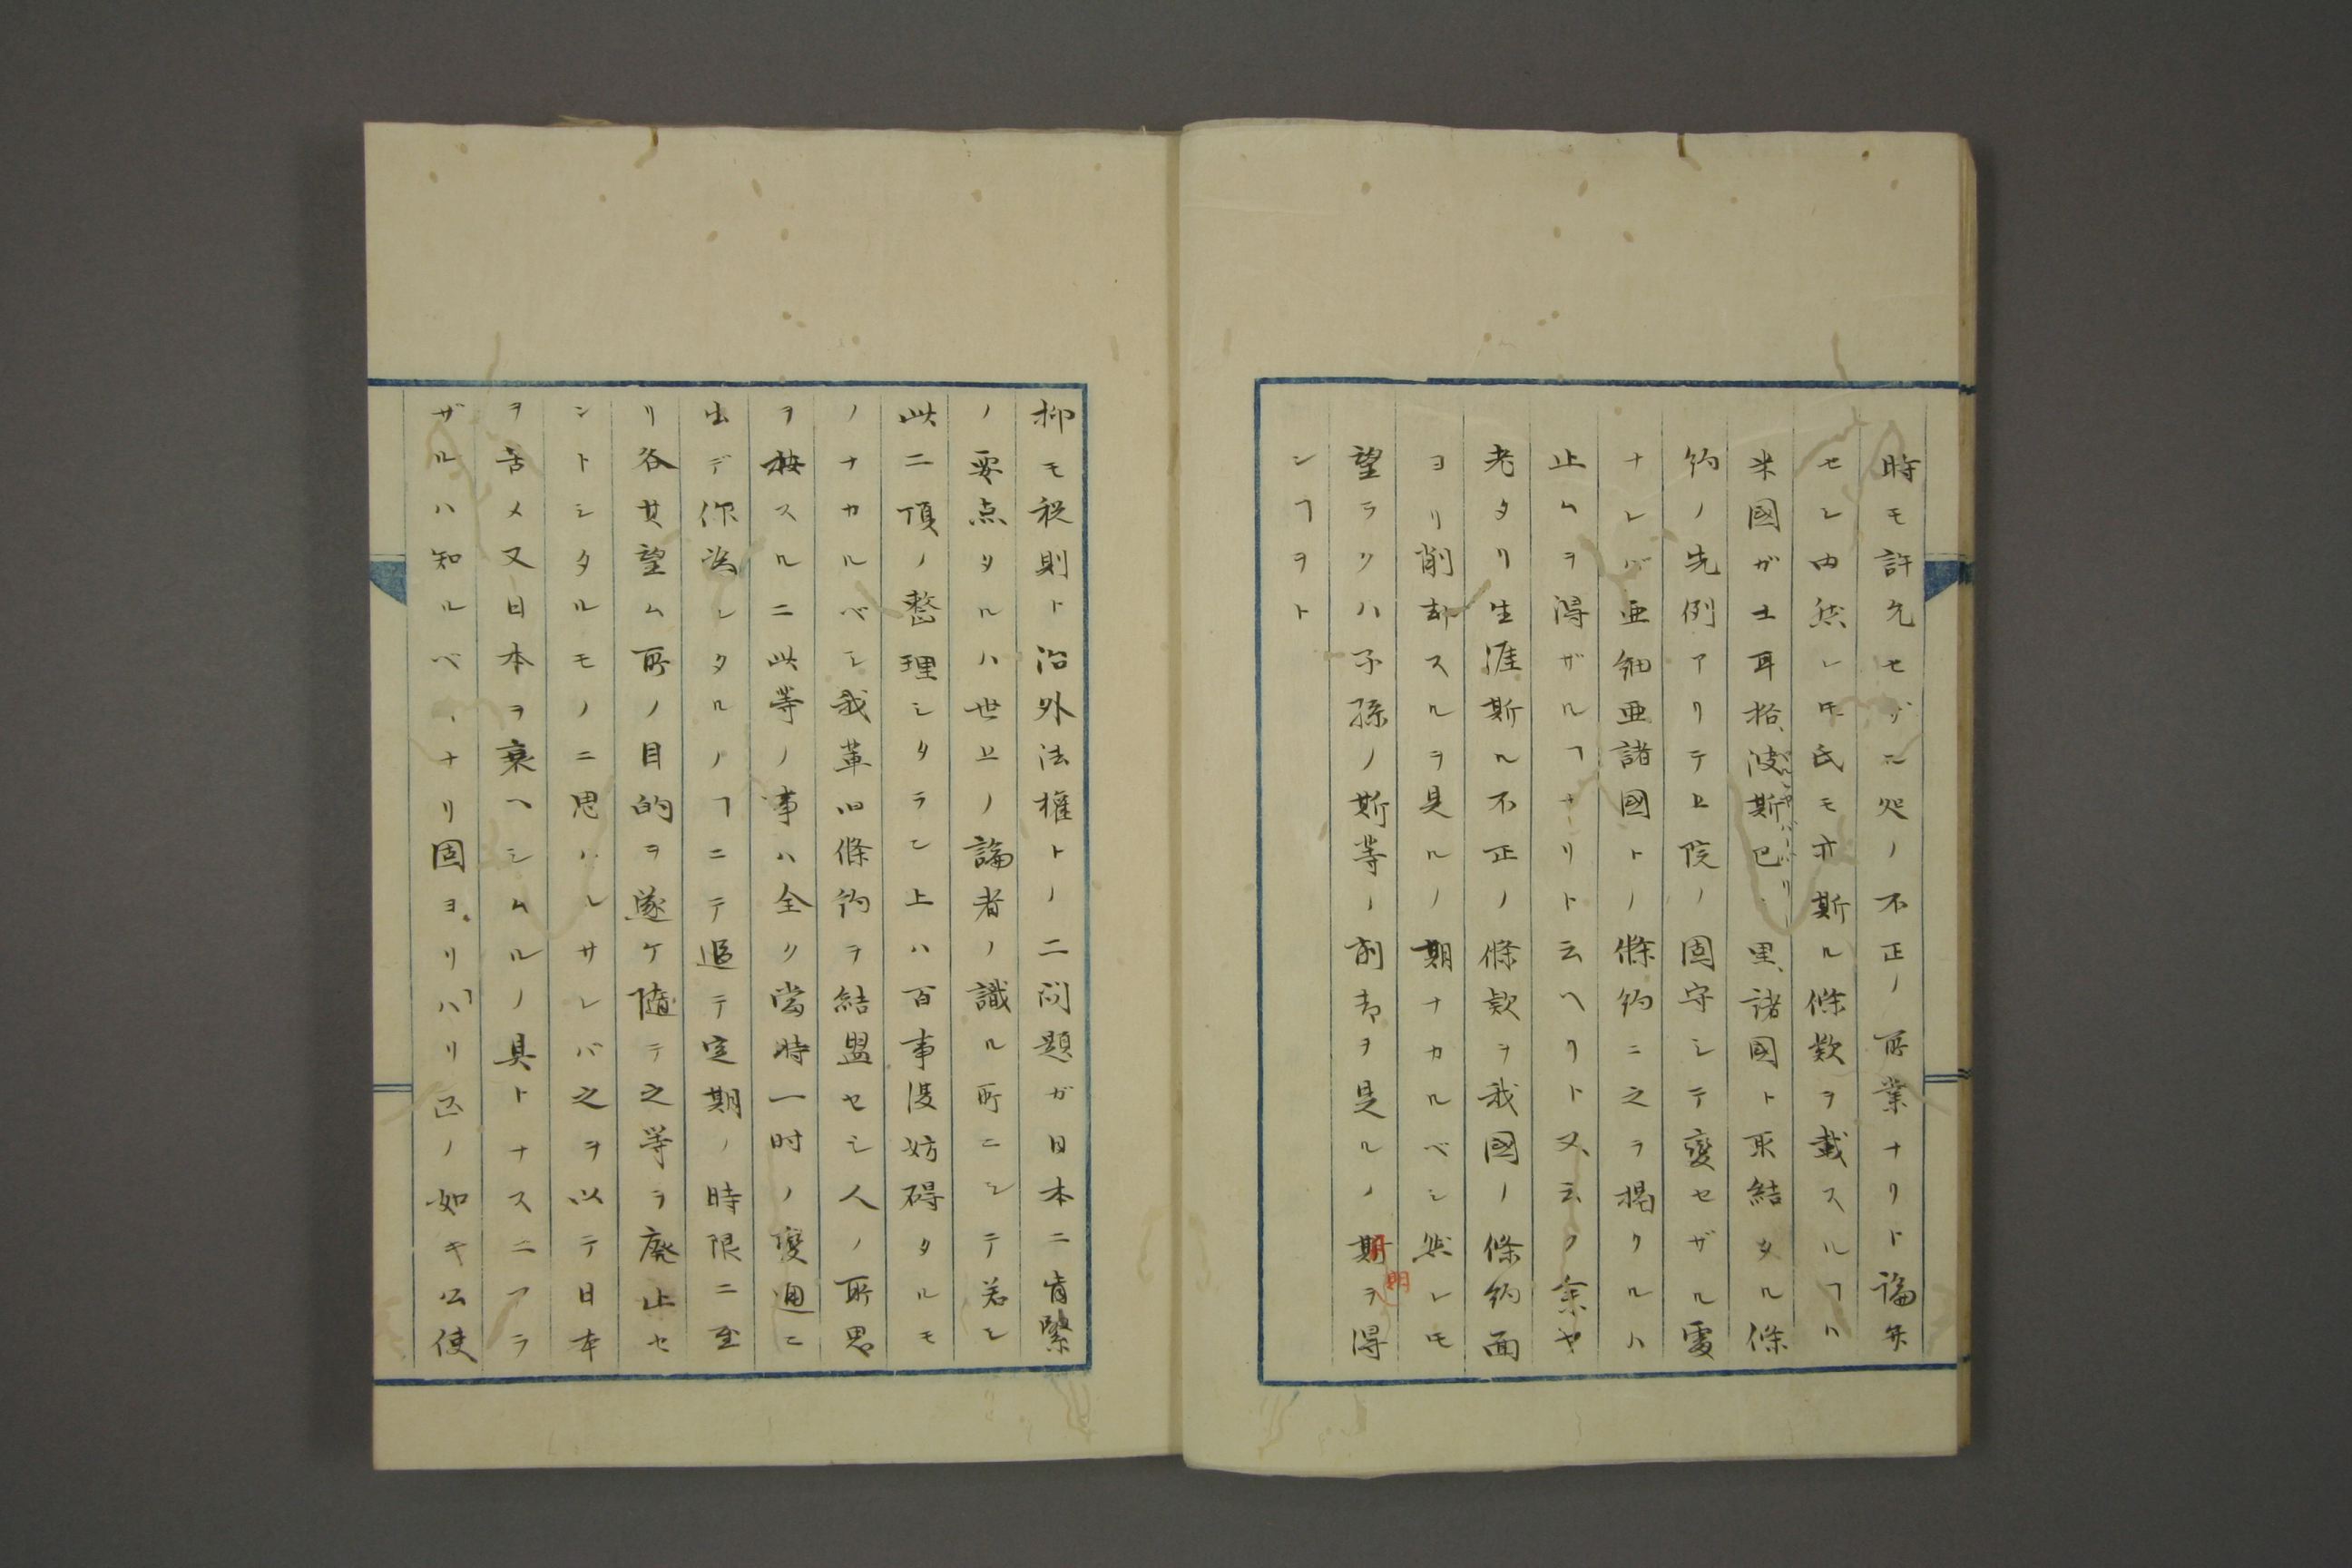 時モ許允セザル処ノ不正ノ所業ナリト論弁
セシ由然レ𪜈氏モ亦斯ル條欵ヲ載スルヿハ
米國ガ土耳格、波斯、巴、里、諸國ト取結タル條
約ノ先例アリテ上院ノ固守シテ変セザル処
ナレバ亜細亜諸國トノ條約ニ之ヲ掲クルハ
止ムヲ得ザルヿナリト云ヘリト又云ク余ヤ
老タリ生涯斯ル不正ノ條欵ヲ我國ノ條約面
ヨリ削却スルヲ見ルノ期ナカルベシ然レ𪜈
望ラクハ子孫ノ斯等ノ削却ヲ見ルノ期ヲ得
ンヿヲト
抑モ税則ト治外法權トノ二问題ガ日本ニ肯緊
ノ要点タルハ世上ノ論者ノ識ル所ニシテ若シ
此二項ノ整理シタラン上ハ百事復妨碍タルモ
ノナカルベシ我革旧條約ヲ結盟セシ人ノ所思
ヲ按スルニ此等ノ事ハ全ク當時一时ノ変通ニ
出デ作為シタルノヿニテ追テ定期ノ時限ニ至
リ各其望ム所ノ目的ヲ遂ケ随テ之等ヲ廃止セ
ントシタルモノニ思ハルサレバ之ヲ以テ日本
ヲ苦メ又日本ヲ衰ヘシムルノ具トナスニアラ
ザルハ知ルベヽナリ固ヨリハリ区ノ如キ公使